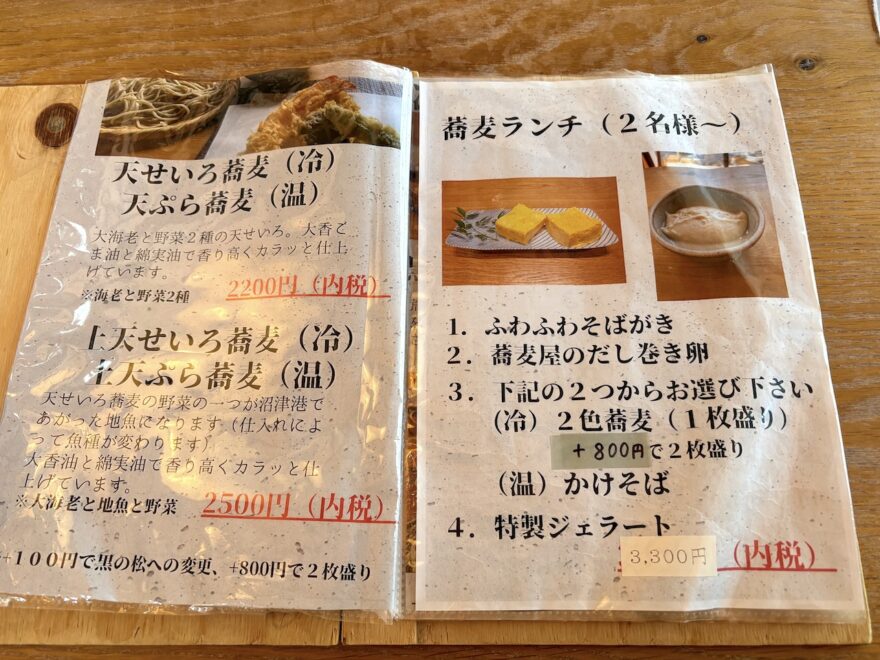 天せいろ蕎麦（冷）
天ぷら蕎麦（温）
大海老と野菜２種の天せいろ。大香ご
ま油と綿実油で香り高くカラッと仕上
げています。
※海老と野菜2種
2200円（内税）
上天せいろ蕎麦（冷）
上天ぷら蕎麦（温）
天せいろ蕎麦の野菜の一つが沼津港で
あがった地魚になります（仕入れによ
って魚種が変わります）
大香油と綿実油で香り高くカラッと仕
上げています。
※大海老と地魚と野菜
2500円（内税）
+１００円で黒の松への変更、+800円で２枚盛り
蕎麦ランチ（２名様～）
1．ふわふわそばがき
2．蕎麦屋のだし巻き卵
3．下記の２つからお選び下さい
（冷）２色蕎麦（１枚盛り）
＋800円で２枚盛り
（温）かけそば
4．特製ジェラート
3,300円（内税）